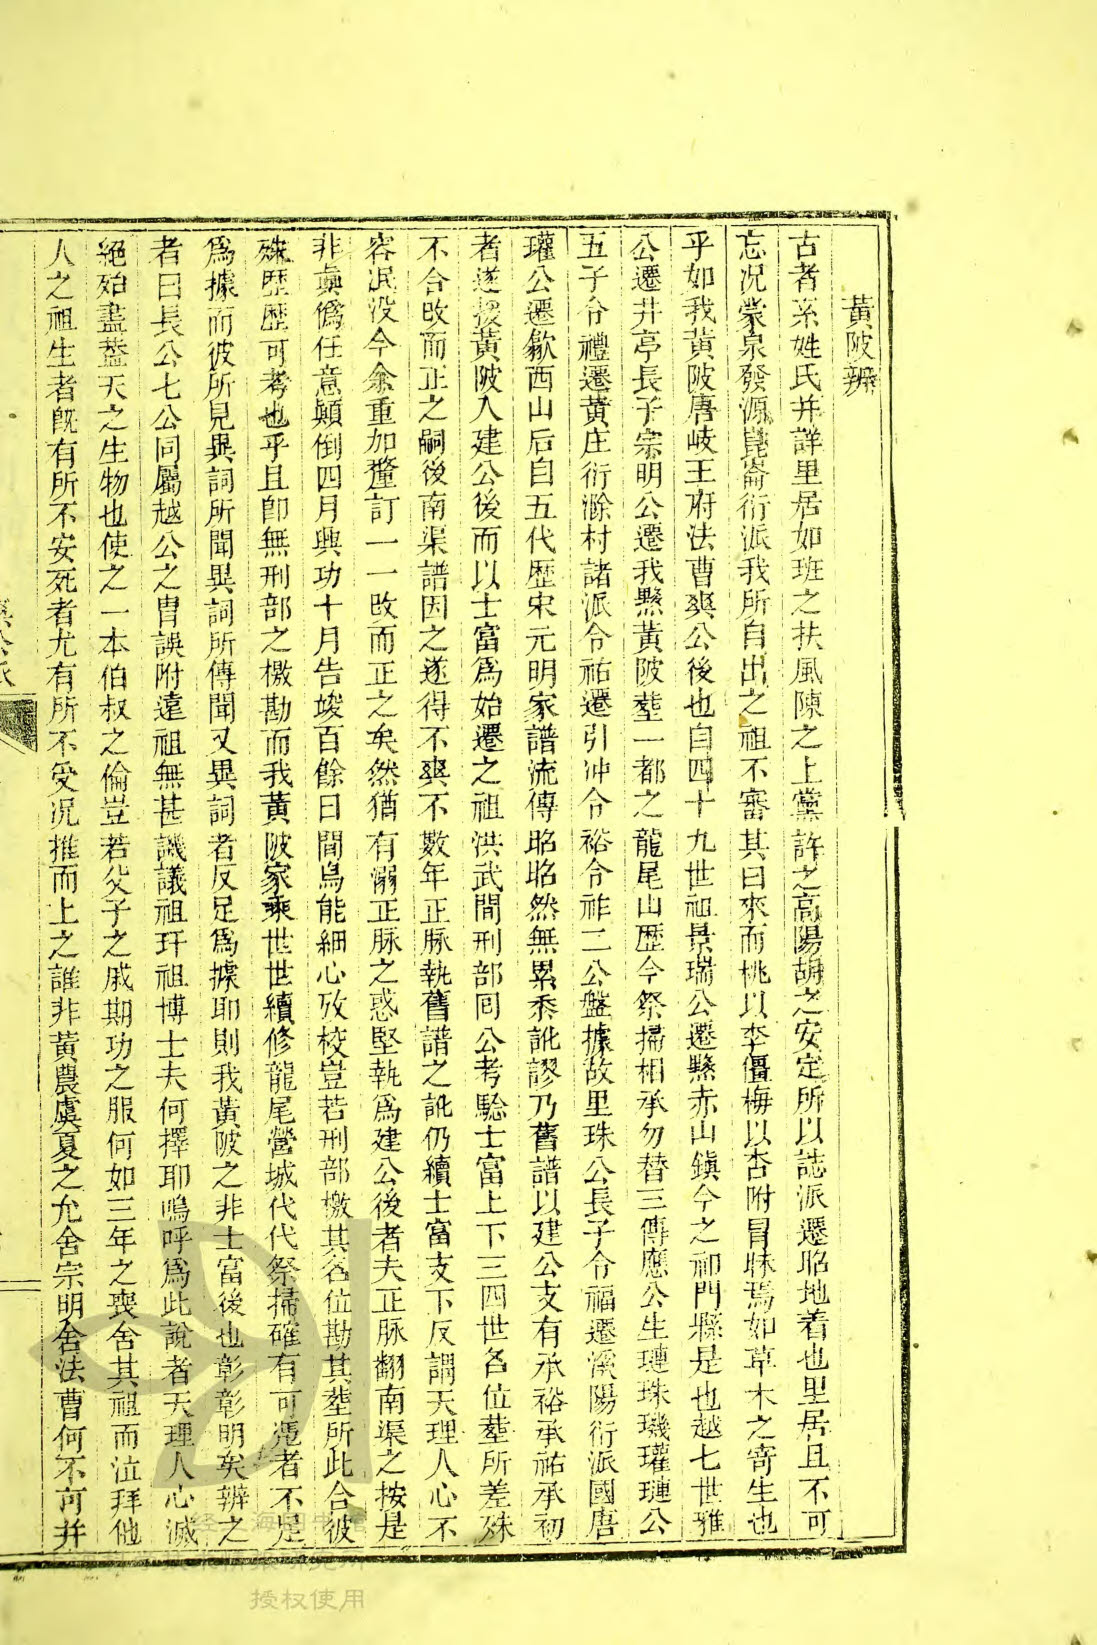 黃陂辨
古者系姓氏并詳里居如班之扶風陳之上黨許之高陽胡之安定所以誌派遷昭地着也里居且不可
忘况蒙泉發源崑崙衍派我所自出之祖不審其曰來而桃以李僵梅以杏附冒昧焉如草木之寄生也
乎如我黃陂唐岐王府法曹爽公後也自四十九世祖景瑞公遷黟赤山鎮今之祁門縣是也越七世雅
公遷井亭長子宗明公遷我黟黃陂塟一都之龍尾山歴今祭掃相承勿替三傳應公生璉珠璣瓘璉公
五子令禮遷黃庄衍滁村諸派令祐遷引冲令裕令祚二公盤據故里珠公長子令福遷溪陽衍派國唐
瓘公遷歙西山后自五代歴宋元明家譜流傳昭昭然無累黍訛謬乃舊譜以建公支有承裕承祐承初
者遂接黃陂入建公後而以士富爲始遷之祖洪武間刑部囘公考騐士富上下三四世各位塟所差殊
不合攺而正之嗣後南渠譜因之遂得不爽不數年正脉執舊譜之訛仍續士富支下反謂天理人心不
容泯没今余重加釐訂一一攺而正之矣然猶有溺正脉之惑堅執爲建公後者夫正脉翻南渠之按是
非眞僞任意顚倒四月興功十月告竣百餘日間烏能細心攷校豈若刑部檄其各位勘其塟所此合彼
殊歴歴可考也乎且卽無刑部之檄勘而我黃陂家乘世世續修龍尾營城代代祭掃確有可凴者不是
爲據而彼所見異詞所聞異詞所傳聞又異詞者反足爲據耶則我黃陂之非士富後也彰彰明矣辨之
者曰長公七公同屬越公之胄誤附遠祖無甚譏議祖玕祖博士夫何擇耶嗚呼爲此說者天理人心滅
絕殆盡葢天之生物也使之一本伯叔之倫豈若父子之戚期功之服何如三年之喪舍其祖而泣拜他
人之祖生者旣有所不安死者尤有所不受况推而上之誰非黃農虞夏之允舍宗明舍法曹何不可并
授权使用